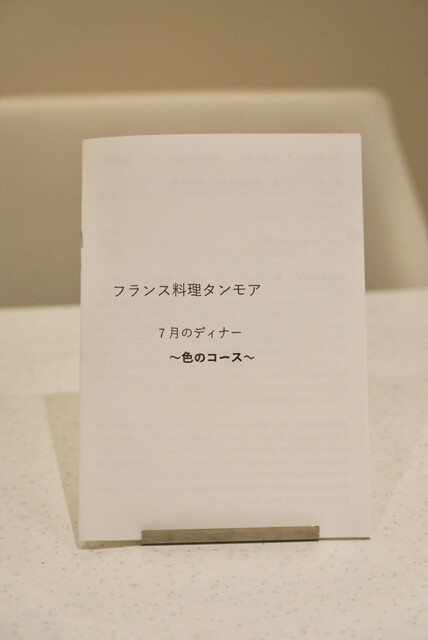 フランス料理タンモア
７月のディナー
～色のコース～